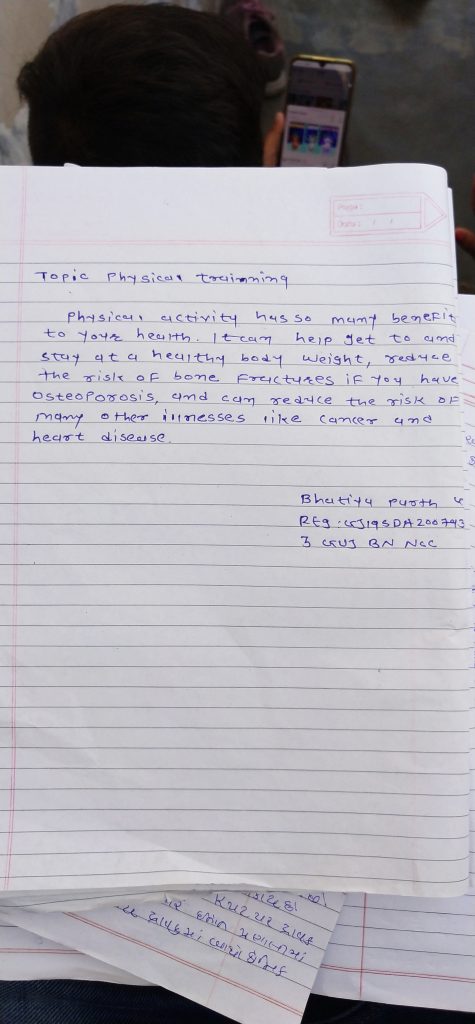 Page:
Date: / /
Topic Physical trainning
Physical activity has so many benefit
to your health. It can help get to and
stay at a healthy body weight, reduce
the risk of bone fractures if you have
osteoporosis, and can reduce the risk of
many other illnesses like cancer and
heart disease.
Bhatiya Parth k
REG: GJ19SDA200743
3 GUJ BN NCC